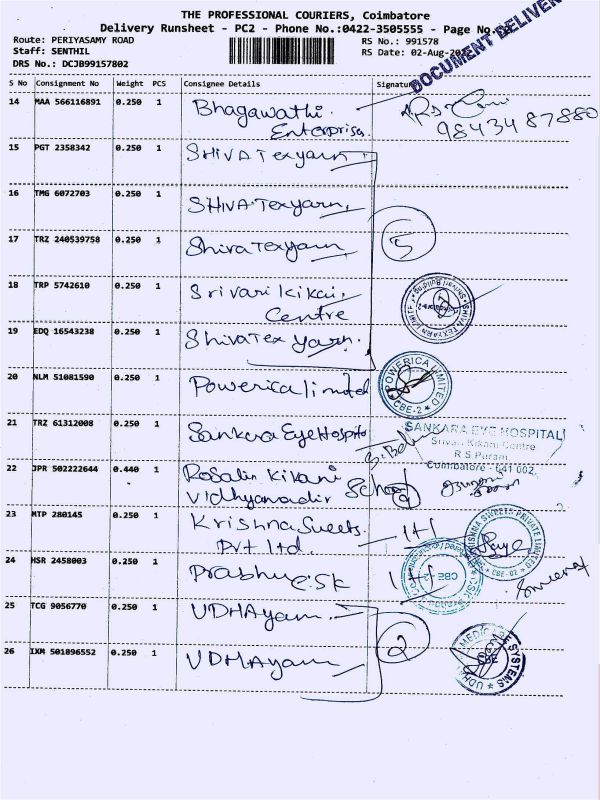 THE PROFESSIONAL COURIERS, Coimbatore
Delivery Runsheet - PC2 - Phone No.:0422-3505555 - Page No.
DOCUMENT DELIVER
Route: PERIYASAMY ROAD
RS No.: 991578
Staff: SENTHIL
RS Date: 02-Aug-
DRS No.: DCJB99157802
S No Consignment No Weight PCS Consignee Details Signature
14 MAA 566116891 0.250 1 Bhagawathi Enterprises 9843487880
15 PGT 2358342 0.250 1 SHIVA Texyarn
16 TMG 6072703 0.250 1 SHIVA Texyarn
17 TRZ 240539758 0.250 1 Shiva Texyarn
5
18 TRP 5742610 0.250 1 Srivari Kikai Centre
SHIVA TEXYARN LIMITED
19 EDQ 16543238 0.250 1 Shiva Tex yarn
20 NLM 51081590 0.250 1 Powerica limited
POWERICA LIMITED
CBE-2
21 TRZ 61312008 0.250 1 Sankara Eye Hospital
SANKARA EYE HOSPITAL
Srivari Kikani Centre
R S Puram
Coimbatore - 641 002
22 JPR 502222644 0.440 1 Kikani Vidhyamadir School
23 MTP 280145 0.250 1 Krishna Sweets Pvt ltd
KRISHNA SWEETS PRIVATE LIMITED
CBE-02
24 HSR 2458003 0.250 1 Prabhu CSK
CBE-2
25 TCG 9056770 0.250 1 UDHAyam
2
26 IXM 501896552 0.250 1 UDHAyam
MEDICAL SYSTEMS
CBE